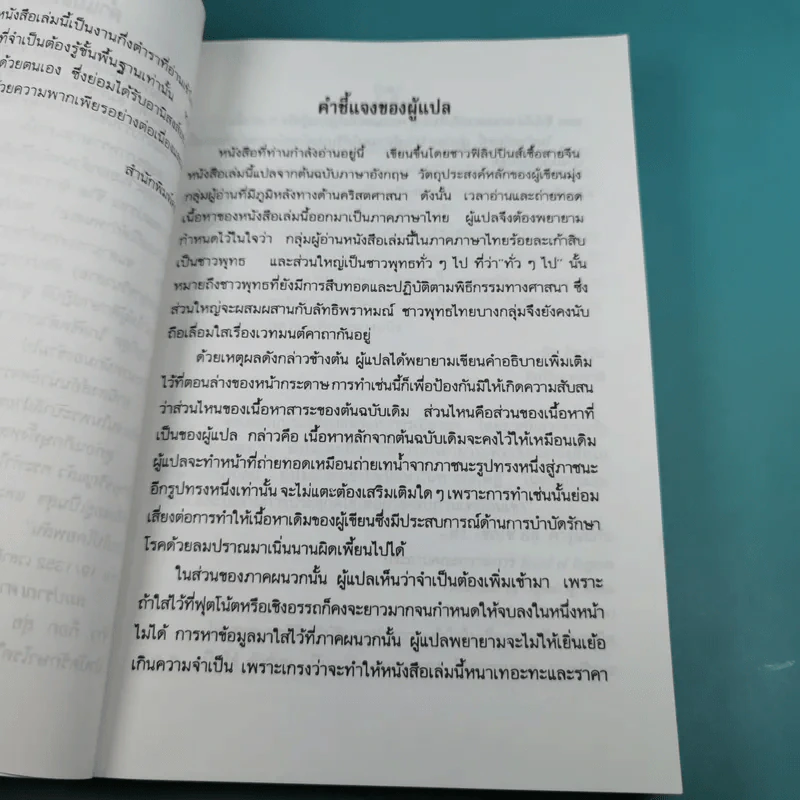 หนังสือเล่มนี้เป็นงานกึ่งตำราที่อ่าน
ที่จำเป็นต้องรู้ขั้นพื้นฐานเท่านั้น
ด้วยตนเอง ซึ่งย่อมได้รับอานิสงส์
ความพากเพียรอย่างต่อเนื่อง
สำนักพิมพ์
คำชี้แจงของผู้แปล
หนังสือที่ท่านกำลังอ่านอยู่นี้ เขียนขึ้นโดยชาวฟิลิปปินส์เชื้อสายจีน
หนังสือเล่มนี้แปลจากต้นฉบับภาษาอังกฤษ วัตถุประสงค์หลักของผู้เขียนมุ่ง
กลุ่มผู้อ่านที่มีภูมิหลังทางด้านคริสตศาสนา ดังนั้น เวลาอ่านและถ่ายทอด
เนื้อหาของหนังสือเล่มนี้ออกมาเป็นภาคภาษาไทย ผู้แปลจึงต้องพยายาม
กำหนดไว้ในใจว่า กลุ่มผู้อ่านหนังสือเล่มนี้ในภาคภาษาไทยร้อยละเก้าสิบ
เป็นชาวพุทธ และส่วนใหญ่เป็นชาวพุทธทั่ว ๆ ไป ที่ว่า"ทั่ว ๆ ไป" นั้น
หมายถึงชาวพุทธที่ยังมีการสืบทอดและปฏิบัติตามพิธีกรรมทางศาสนา ซึ่ง
ส่วนใหญ่จะผสมผสานกับลัทธิพราหมณ์ ชาวพุทธไทยบางกลุ่มจึงยังคงนับ
ถือเลื่อมใสเรื่องเวทมนต์คาถากันอยู่
ด้วยเหตุผลดังกล่าวข้างต้น ผู้แปลได้พยายามเขียนคำอธิบายเพิ่มเติม
ไว้ที่ตอนล่างของหน้ากระดาษ การทำเช่นนี้ก็เพื่อป้องกันมิให้เกิดความสับสน
ว่าส่วนไหนของเนื้อหาสาระของต้นฉบับเดิม ส่วนไหนคือส่วนของเนื้อหาที่
เป็นของผู้แปล กล่าวคือ เนื้อหาหลักจากต้นฉบับเดิมจะคงไว้ให้เหมือนเดิม
ผู้แปลจะทำหน้าที่ถ่ายทอดเหมือนถ่ายเทน้ำจากภาชนะรูปทรงหนึ่งสู่ภาชนะ
อีกรูปทรงหนึ่งเท่านั้น จะไม่แตะต้องเสริมเติมใด ๆ เพราะการทำเช่นนั้นย่อม
เสี่ยงต่อการทำให้เนื้อหาเดิมของผู้เขียนซึ่งมีประสบการณ์ด้านการบำบัดรักษา
โรคด้วยลมปราณมาเนิ่นนานผิดเพี้ยนไปได้
ในส่วนของภาคผนวกนั้น ผู้แปลเห็นว่าจำเป็นต้องเพิ่มเข้ามา เพราะ
ถ้าใส่ไว้ที่ฟุตโน้ตหรือเชิงอรรถก็คงจะยาวมากจนกำหนดให้จบลงในหนึ่งหน้า
ไม่ได้ การหาข้อมูลมาใส่ไว้ที่ภาคผนวกนั้น ผู้แปลพยายามจะไม่ให้เยิ่นเย้อ
เกินความจำเป็น เพราะเกรงว่าจะทำให้หนังสือเล่มนี้หนาเทอะทะและราคา